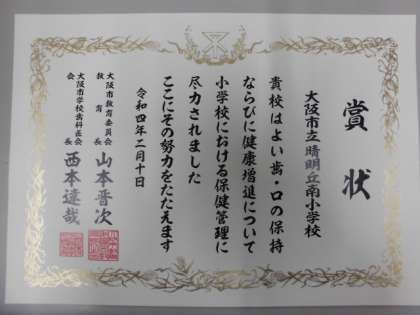 賞状
大阪市立晴明丘南小学校
貴校はよい歯・口の保持
ならびに健康増進について
小学校における保健管理に
尽力されました
ここにその努力をたたえます
令和四年二月十日
大阪市教育委員会
教育長 山本晋次
大阪市学校歯科医会
会長 西本達哉